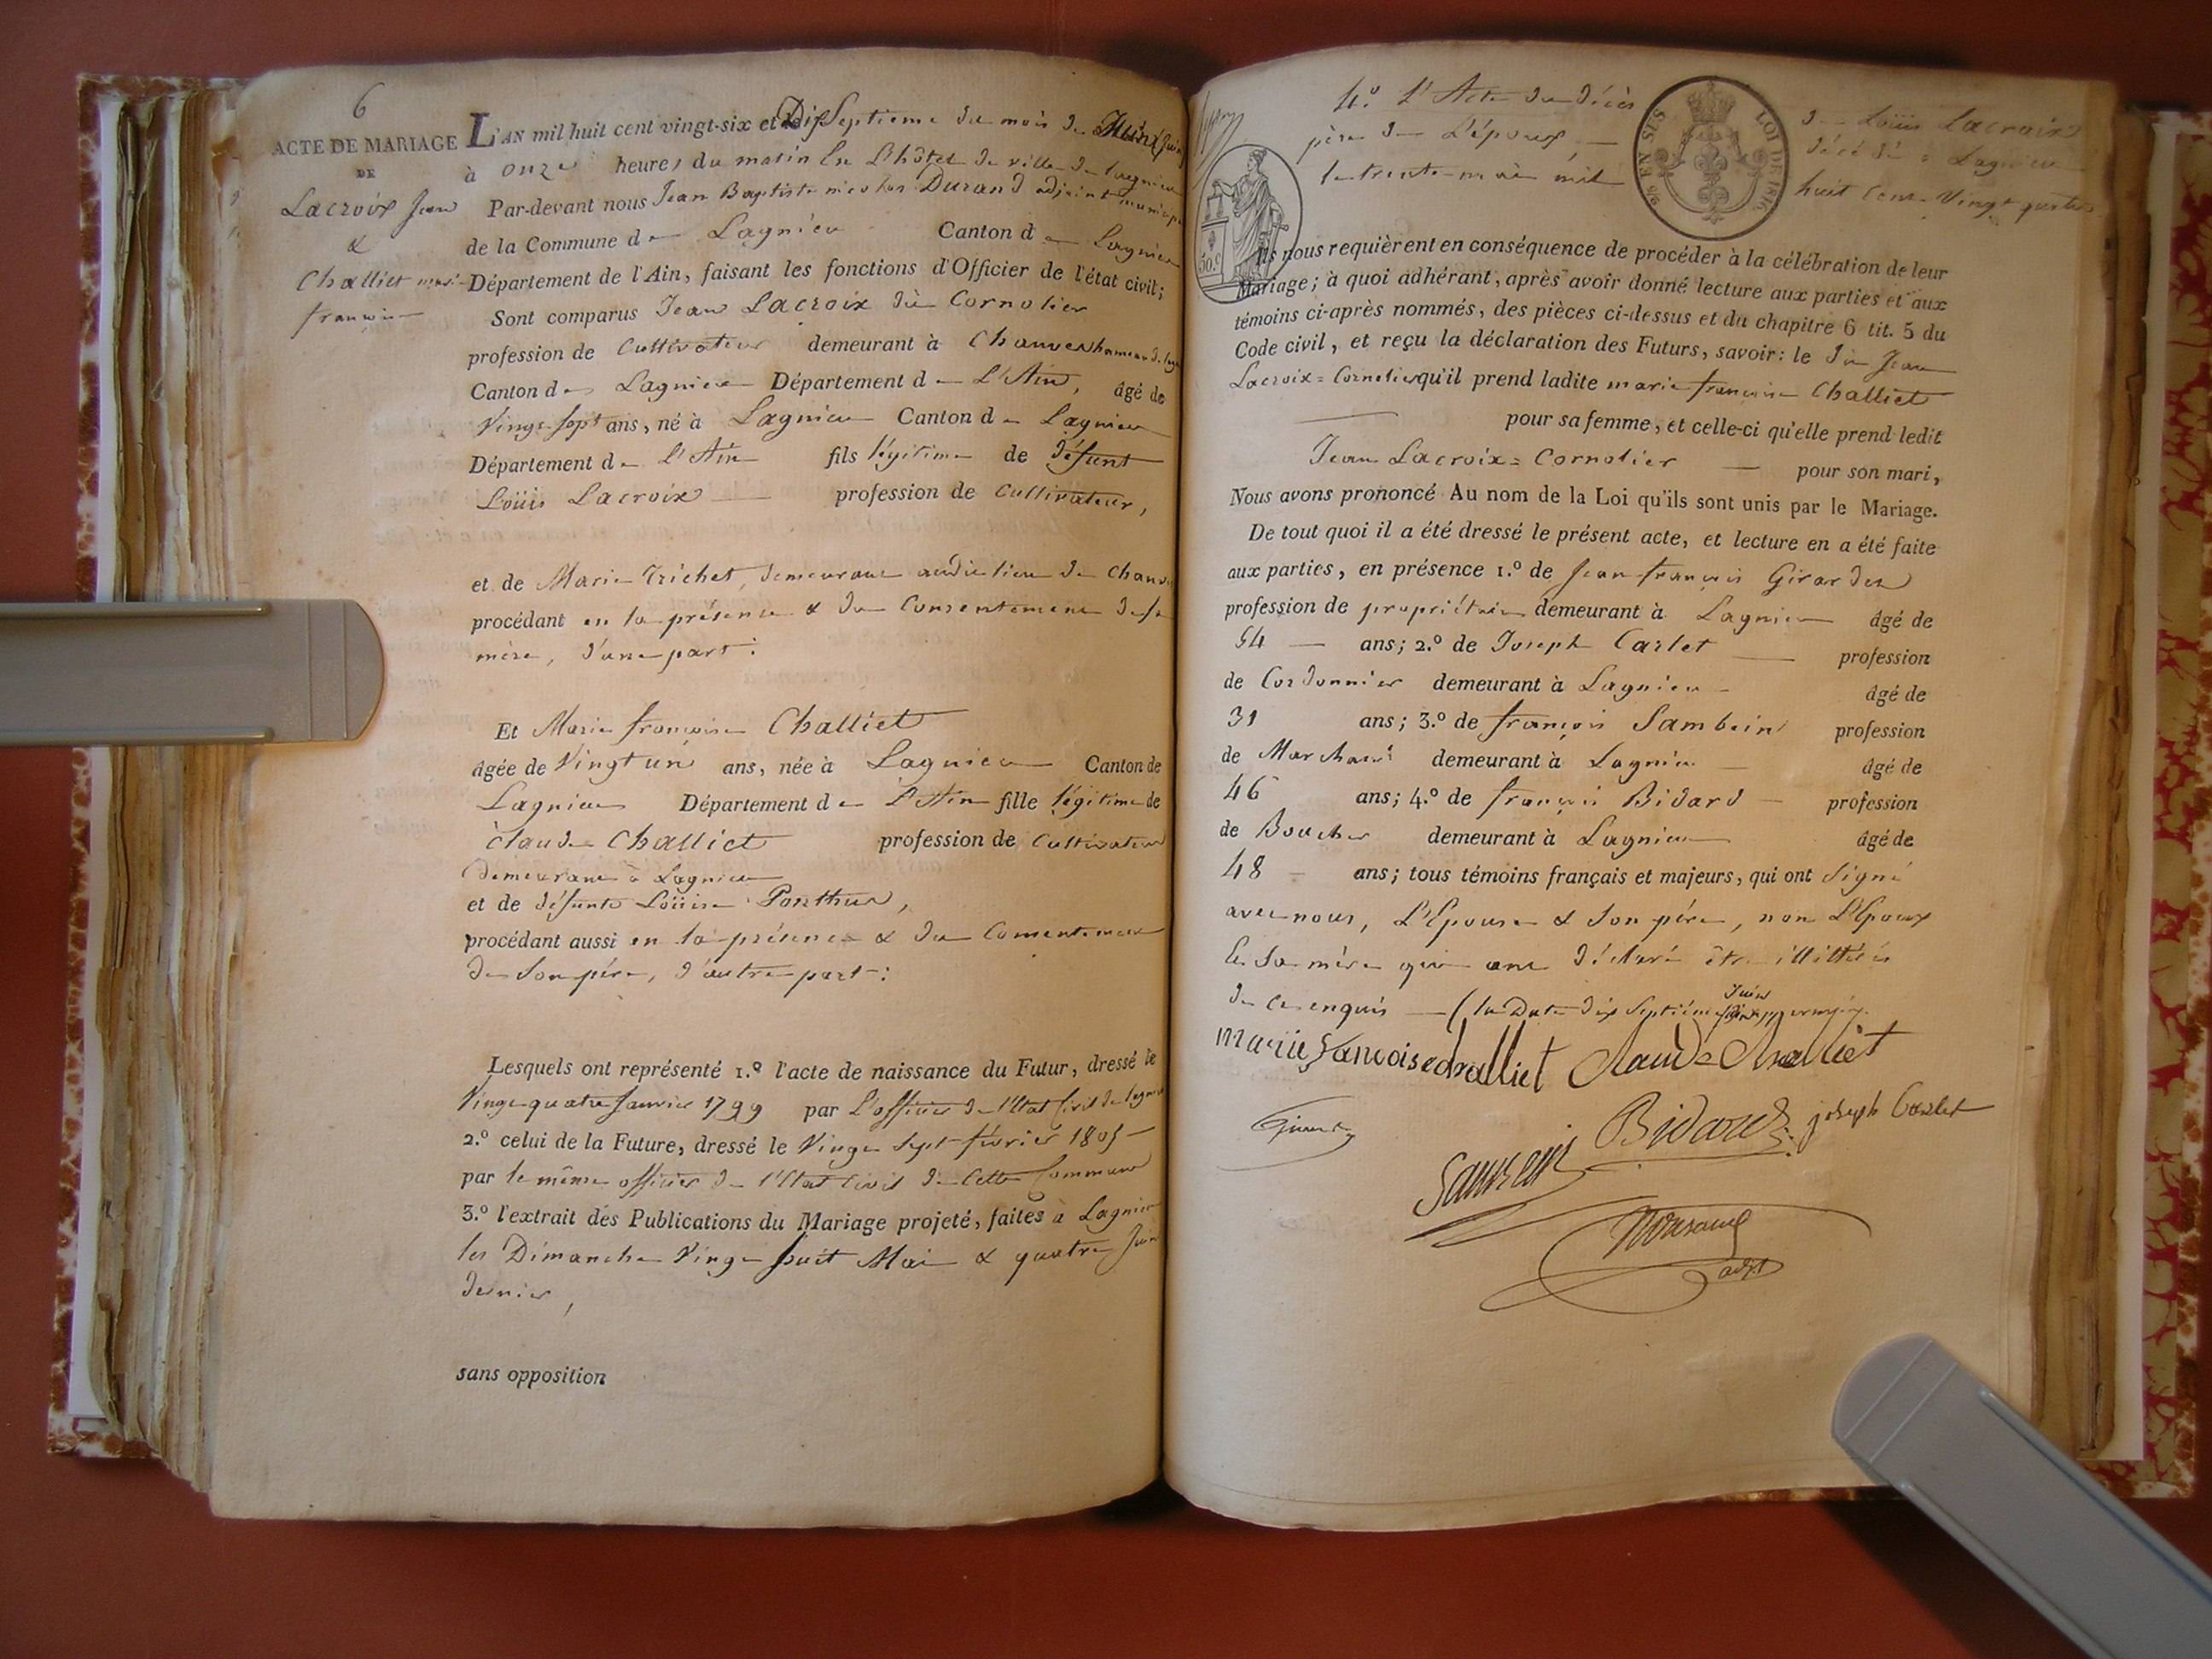 6
ACTE DE MARIAGE
DE
Lacroix Jean
&
Challiet marie
françoise
L'AN mil huit cent vingt-six et le Dix Septieme du mois de Juin
à onze heures du matin En L'hôtel de ville de Lagnieu
Par-devant nous Jean Baptiste nicolas Durand adjoint municipal
de la Commune de Lagnieu Canton de Lagnieu
Département de l'Ain, faisant les fonctions d'Officier de l'état civil;
Sont comparus Jean Lacroix dit Cornolier
profession de Cultivateur demeurant à Chanves hameau de Lagnieu
Canton de Lagnieu Département de L'Ain, âgé de
Vingt Sept ans, né à Lagnieu Canton de Lagnieu
Département de L'Ain fils légitime de défunt
Loüis Lacroix profession de Cultivateur,
et de Marie Trichet, demeurant audit lieu de Chanves
procédant en la présence & du Consentement de sa
mère, d'une part:
Et Marie françoise Challiet
âgée de Vingt un ans, née à Lagnieu Canton de
Lagnieu Département de L'Ain fille légitime de
Claude Challiet profession de Cultivateur
demeurant à Lagnieu
et de défunte Loüise Ponthus,
procédant aussi en la présence & du Consentement
de Son père, d'autre part:
Lesquels ont représenté 1.º l'acte de naissance du Futur, dressé le
Vingt quatre Janvier 1799 par L'officier de l'Etat Civil de Lagnieu
2.º celui de la Future, dressé le Vingt Sept février 1805
par le même officier de l'Etat Civil de Cette Commune
3.º l'extrait des Publications du Mariage projeté, faites à Lagnieu
les Dimanche Vingt huit Mai & quatre Juin
dernier,
sans opposition
4.º L'Acte de décès de Loüis Lacroix
père de L'époux, décédé à Lagnieu
le trente mai mil huit Cent Vingt quatre
EN SUS LOI DE 1816
50.c
Ils nous requièrent en conséquence de procéder à la célébration de leur
Mariage; à quoi adhérant, après avoir donné lecture aux parties et aux
témoins ci-après nommés, des pièces ci-dessus et du chapitre 6 tit. 5 du
Code civil, et reçu la déclaration des Futurs, savoir: le dit Jean
Lacroix=Cornolier qu'il prend ladite marie françoise Challiet
pour sa femme, et celle-ci qu'elle prend ledit
Jean Lacroix=Cornolier pour son mari,
Nous avons prononcé Au nom de la Loi qu'ils sont unis par le Mariage.
De tout quoi il a été dressé le présent acte, et lecture en a été faite
aux parties, en présence 1.º de Jean françois Girardet
profession de propriétaire demeurant à Lagnieu âgé de
54 ans; 2.º de Joseph Carlet profession
de Cordonnier demeurant à Lagnieu âgé de
31 ans; 3.º de françois Sambein profession
de Marchand demeurant à Lagnieu âgé de
46 ans; 4.º de françois Bidard profession
de Boucher demeurant à Lagnieu âgé de
48 ans; tous témoins français et majeurs, qui ont Signé
avec nous, L'Epouse & Son père, non L'Epoux
Et Sa mère qui ont déclaré être illittérés
de ce enquis (la Date dix Septième Juin
marie francoise challiet Claude Challiet
Bidard joseph Carlet
Durand
adjt